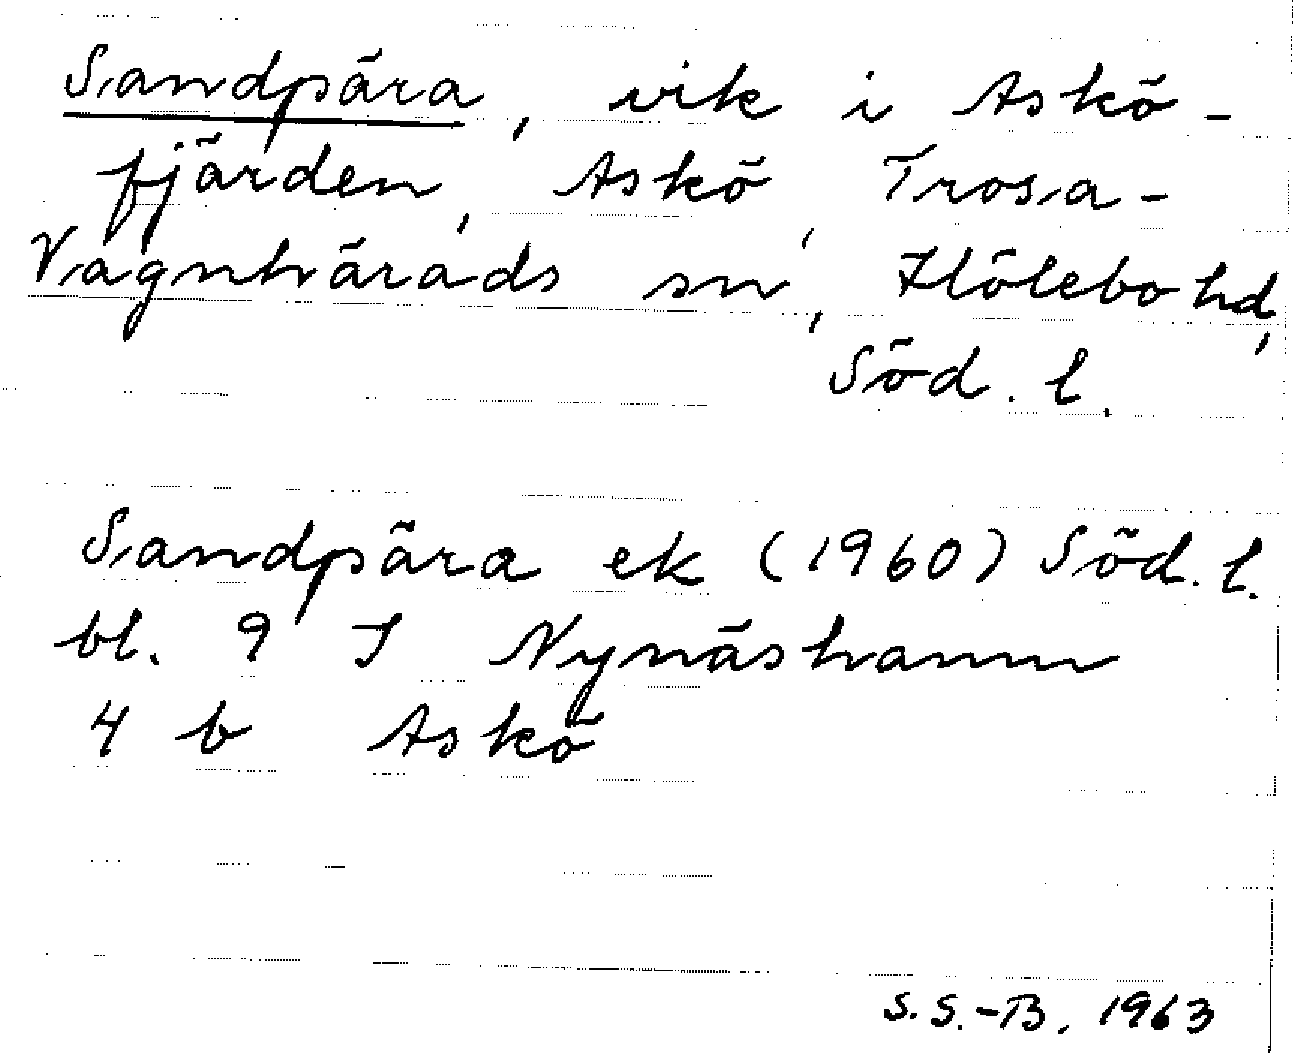 Sandpära, vik i Askö-
fjärden, Askö, Trosa-
Vagnhärads sn, Hölebo hd,
Söd. l.
Sandpära ek (1960) Söd. l.
bl. 9 I Nynäshamn
4 b Askö
S. S.-B. 1963